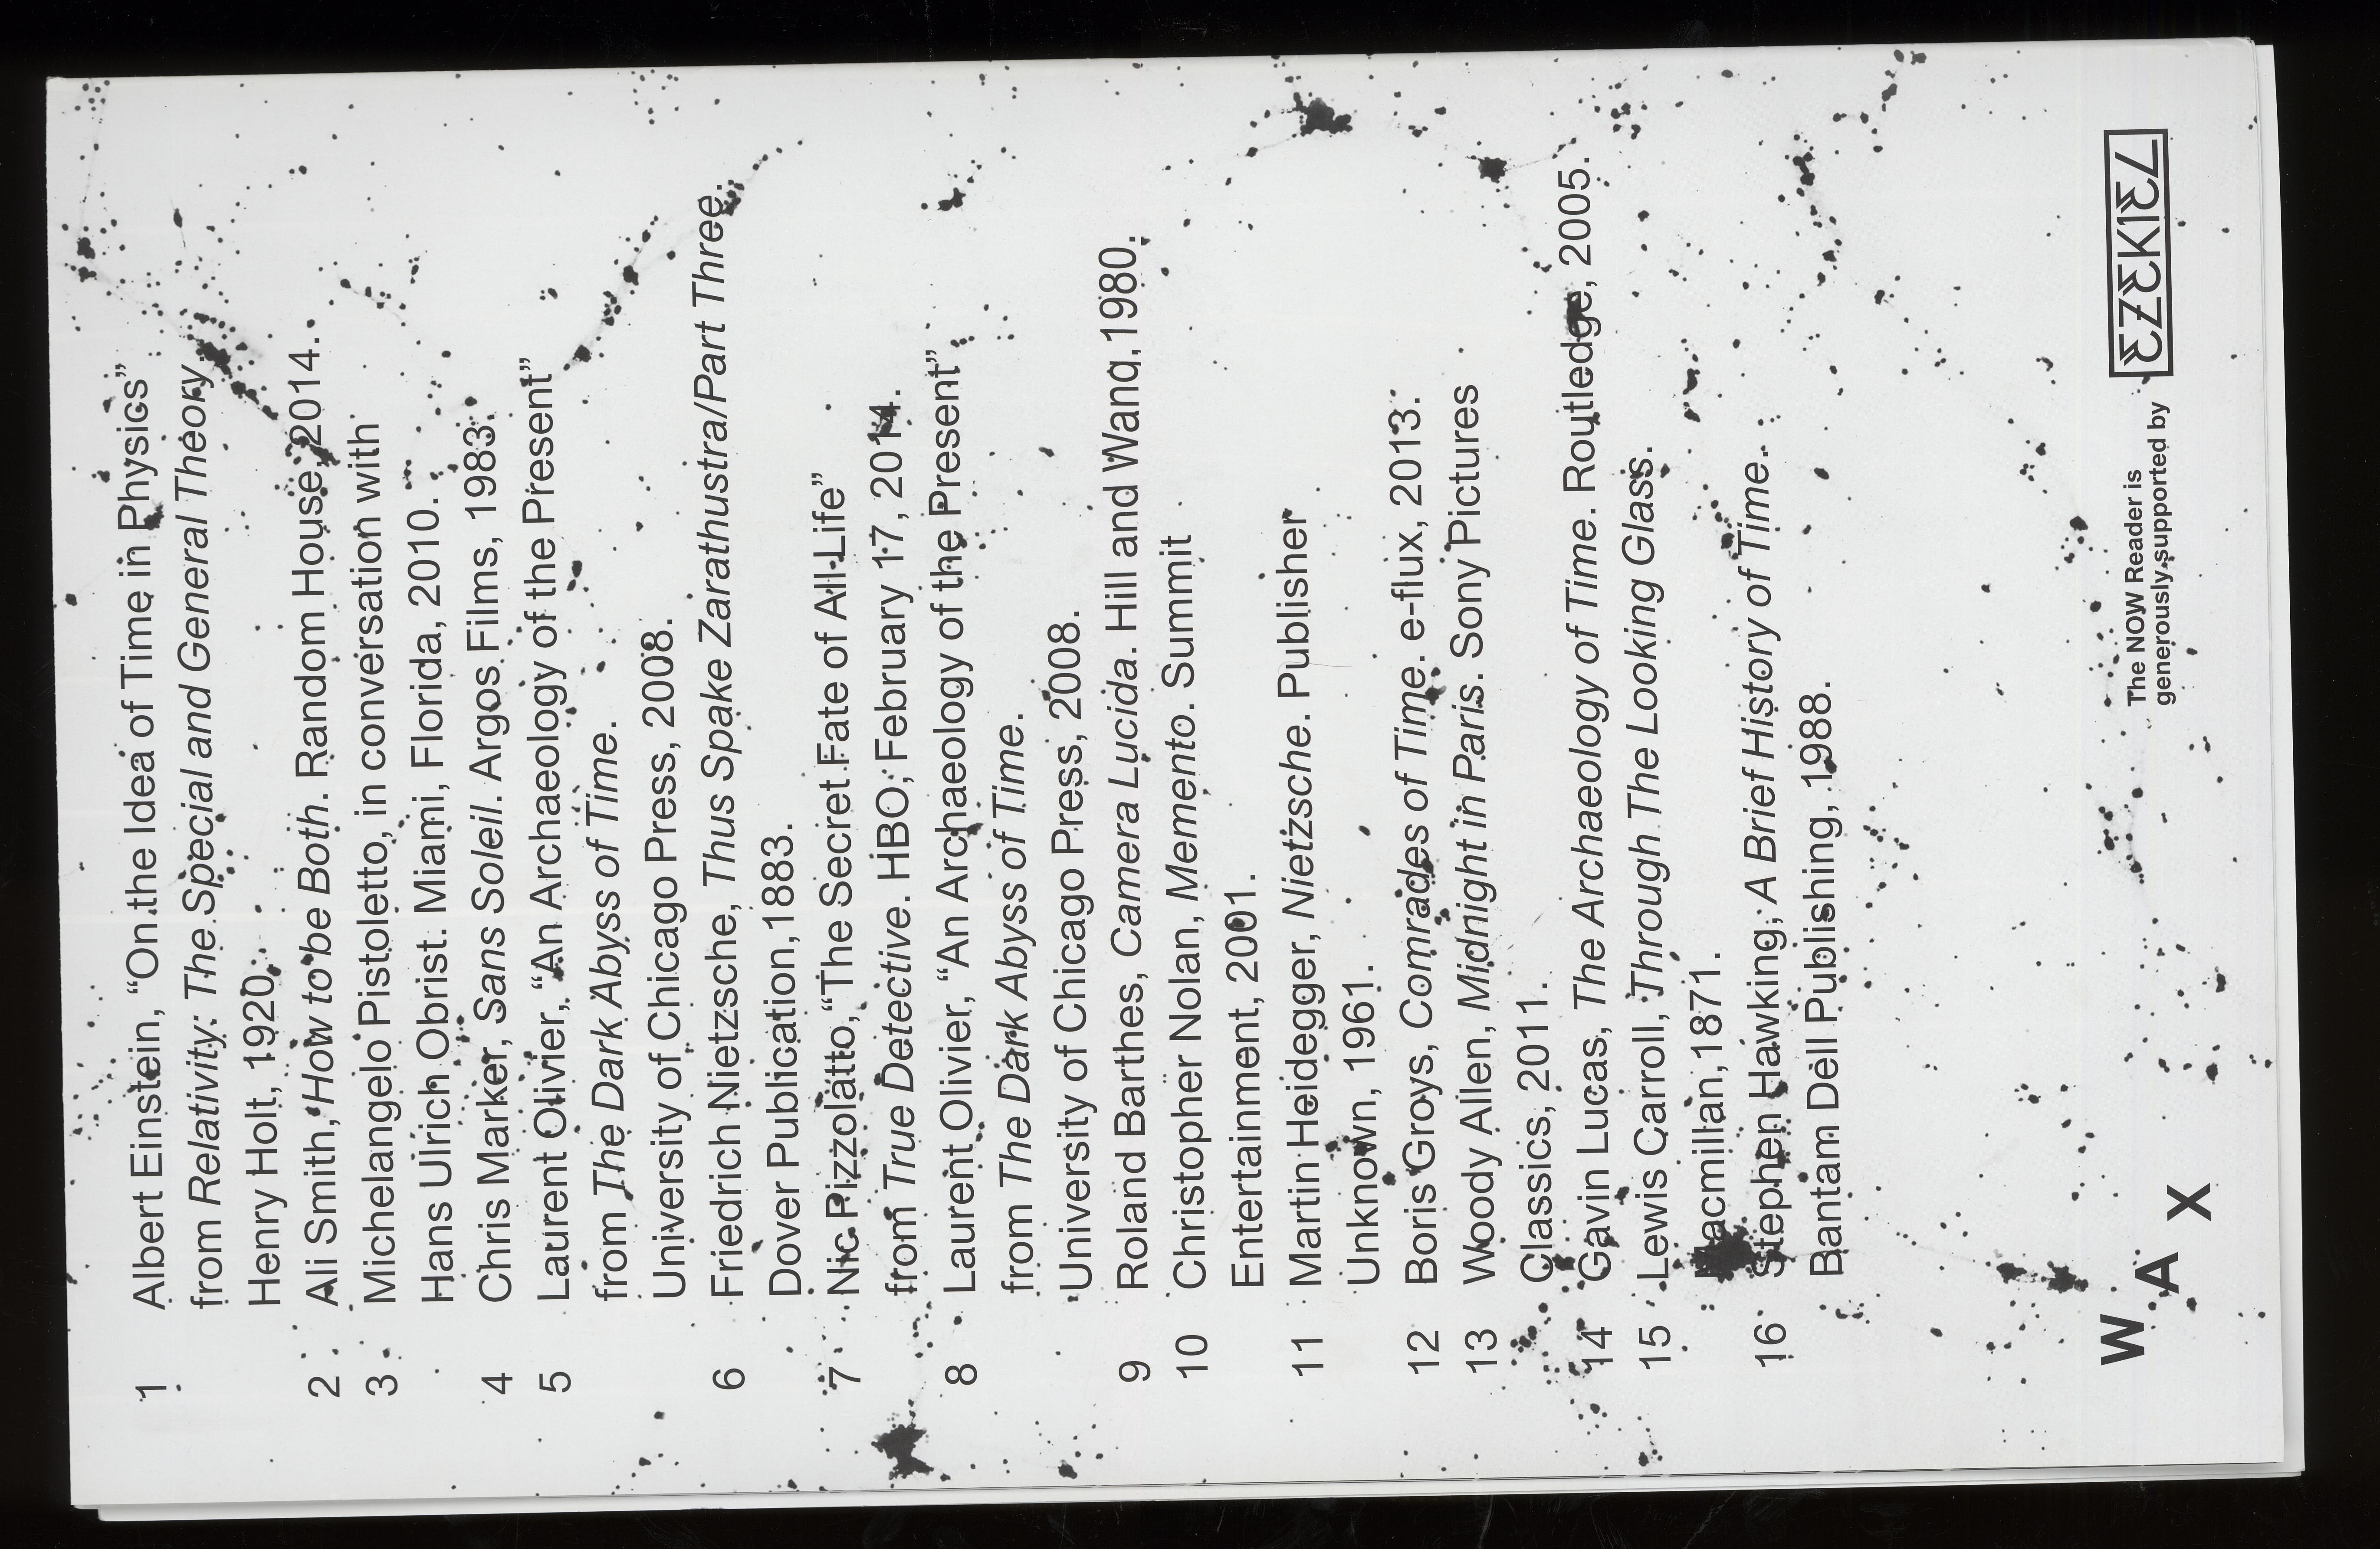 1 Albert Einstein, “On the Idea of Time in Physics”
from Relativity: The Special and General Theory.
Henry Holt, 1920.
2 Ali Smith, How to be Both. Random House, 2014.
3 Michelangelo Pistoletto, in conversation with
Hans Ulrich Obrist. Miami, Florida, 2010.
4 Chris Marker, Sans Soleil. Argos Films, 1983.
5 Laurent Olivier, “An Archaeology of the Present”
from The Dark Abyss of Time.
University of Chicago Press, 2008.
6 Friedrich Nietzsche, Thus Spake Zarathustra/Part Three.
Dover Publication, 1883.
7 Nic Pizzolatto, “The Secret Fate of All Life”
from True Detective. HBO, February 17, 2014.
8 Laurent Olivier, “An Archaeology of the Present”
from The Dark Abyss of Time.
University of Chicago Press, 2008.
9 Roland Barthes, Camera Lucida. Hill and Wang, 1980.
10 Christopher Nolan, Memento. Summit
Entertainment, 2001.
11 Martin Heidegger, Nietzsche. Publisher
Unknown, 1961.
12 Boris Groys, Comrades of Time. e-flux, 2013.
13 Woody Allen, Midnight in Paris. Sony Pictures
Classics, 2011.
14 Gavin Lucas, The Archaeology of Time. Routledge, 2005.
15 Lewis Carroll, Through The Looking Glass.
Macmillan, 1871.
16 Stephen Hawking, A Brief History of Time.
Bantam Dell Publishing, 1988.
W
A
X
The NOW Reader is
generously supported by
EZEKIEL